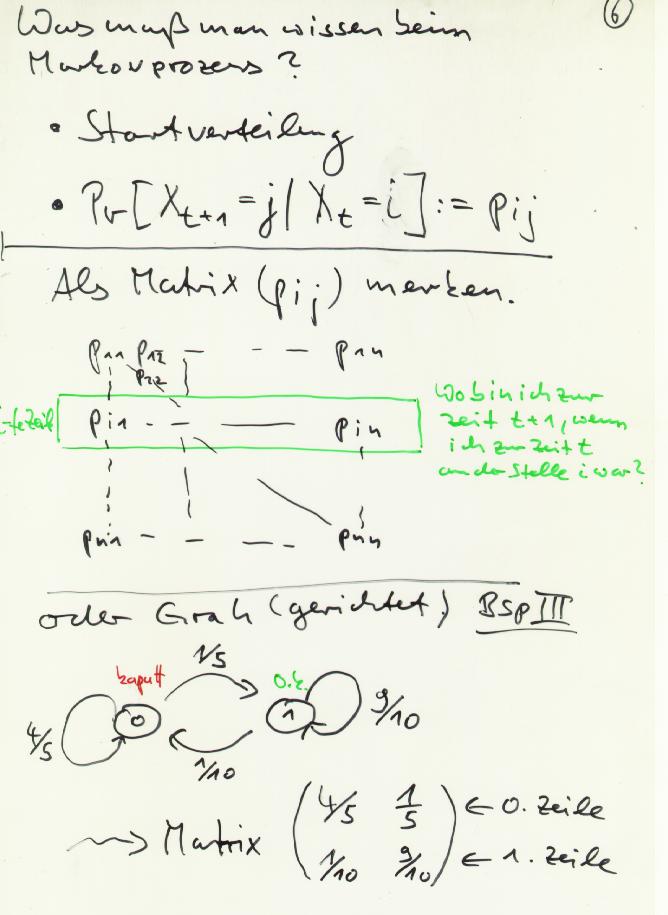 6
Was muß man wissen beim
Markovprozess?
• Startverteilung
• Pr[X_{t+1} = j | X_t = i] := pij
Als Matrix (pij) merken.
p11 p12 - - - p1n
p22
i-te Zeile pi1 - - — pin
Wo bin ich zur
Zeit t+1, wenn
ich zur Zeit t
an der Stelle i war?
pn1 - - — - pnn
oder Grah (gerichtet) Bsp III
kaputt 1/5 o.k.
4/5 0 1 9/10
1/10
Matrix (4/5 1/5) ← 0. Zeile
(1/10 9/10) ← 1. Zeile